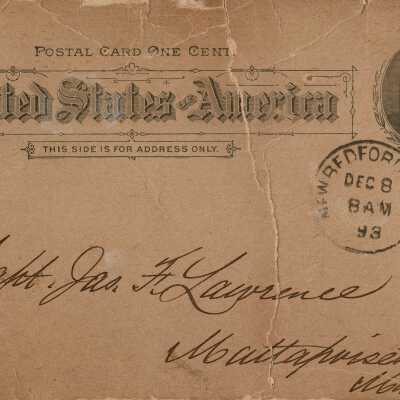 POSTAL CARD ONE CENT.
ted States of America
THIS SIDE IS FOR ADDRESS ONLY.
NEW BEDFORD
DEC 8
8 AM
93
apt. Jas. F. Lawrence
Mattapoise